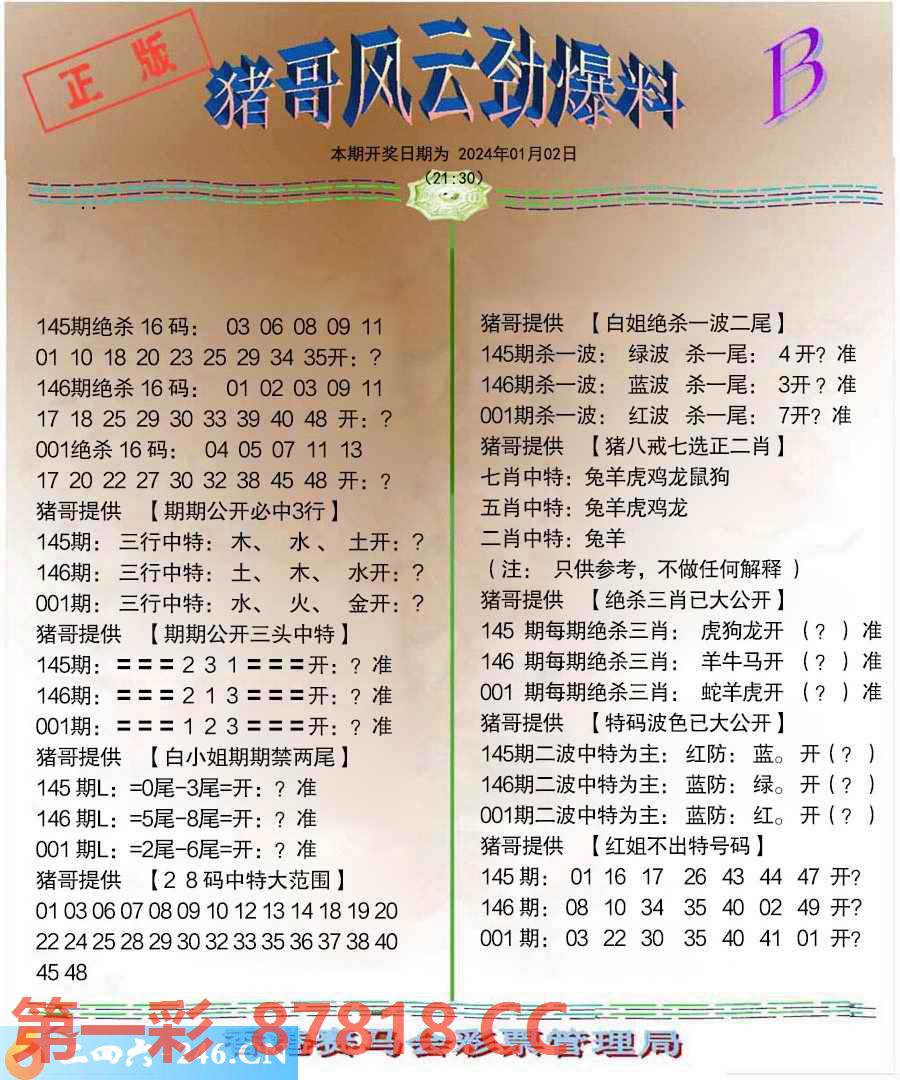 正版
猪哥风云劲爆料
B
本期开奖日期为 2024年01月02日
(21:30)
145期绝杀16码： 03 06 08 09 11
01 10 18 20 23 25 29 34 35开：?
146期绝杀16码： 01 02 03 09 11
17 18 25 29 30 33 39 40 48 开：?
001绝杀16码： 04 05 07 11 13
17 20 22 27 30 32 38 45 48 开：?
猪哥提供 【期期公开必中3行】
145期： 三行中特： 木、 水、 土开：?
146期： 三行中特： 土、 木、 水开：?
001期： 三行中特： 水、 火、 金开：?
猪哥提供 【期期公开三头中特】
145期：===231===开：? 准
146期：===213===开：? 准
001期：===123===开：? 准
猪哥提供 【白小姐期期禁两尾】
145期L：=0尾-3尾=开：? 准
146期L：=5尾-8尾=开：? 准
001期L：=2尾-6尾=开：? 准
猪哥提供 【28码中特大范围】
01 03 06 07 08 09 10 12 13 14 18 19 20
22 24 25 28 29 30 32 33 35 36 37 38 40
45 48
猪哥提供 【白姐绝杀一波二尾】
145期杀一波： 绿波 杀一尾： 4开? 准
146期杀一波： 蓝波 杀一尾： 3开? 准
001期杀一波： 红波 杀一尾： 7开? 准
猪哥提供 【猪八戒七选正二肖】
七肖中特：兔羊虎鸡龙鼠狗
五肖中特：兔羊虎鸡龙
二肖中特：兔羊
(注： 只供参考，不做任何解释)
猪哥提供 【绝杀三肖已大公开】
145 期每期绝杀三肖： 虎狗龙开 (?) 准
146 期每期绝杀三肖： 羊牛马开 (?) 准
001 期每期绝杀三肖： 蛇羊虎开 (?) 准
猪哥提供 【特码波色已大公开】
145期二波中特为主： 红防： 蓝。 开(?)
146期二波中特为主： 蓝防： 绿。 开(?)
001期二波中特为主： 蓝防： 红。 开(?)
猪哥提供 【红姐不出特号码】
145期： 01 16 17 26 43 44 47 开?
146期： 08 10 34 35 40 02 49 开?
001期： 03 22 30 35 40 41 01 开?
第一彩 87818.CC
二四六 246.CN
香港赛马会彩票管理局